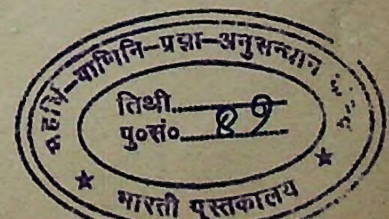 महर्षि-पाणिनि-प्रज्ञा-अनुसन्धान
तिथी..............
पु०सं०.... ........
★ भारती पुस्तकालय ★